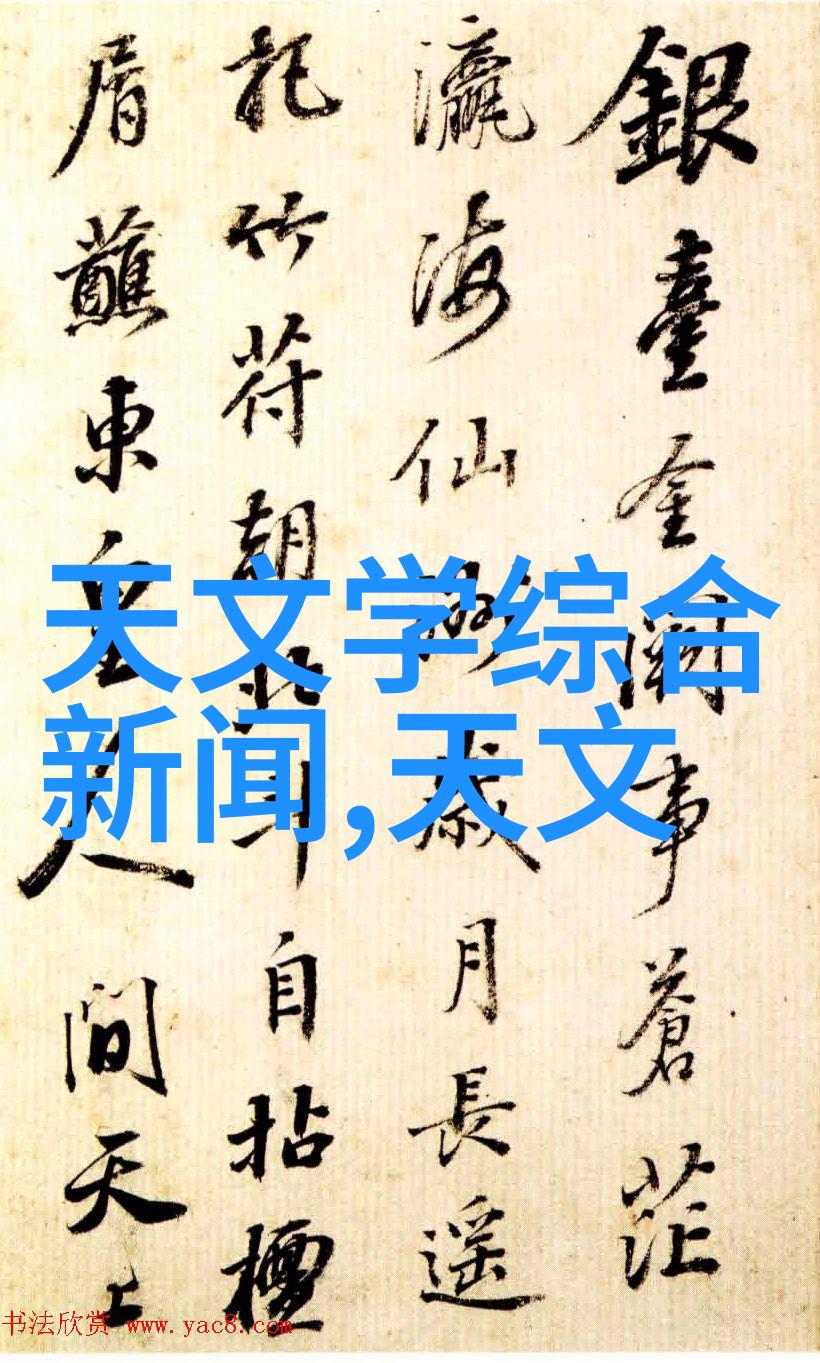 銀臺金闕事蒼茫
瀛海仙歲月長遥
竹符朝北斗自拈檀
屑蘸東皇人間天上
天文学综合
新闻,天文
书法欣赏 www.yac8.com